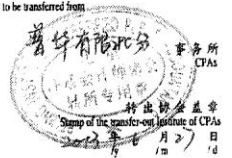 to be transferred from
普华有限北分
事务所
CPAs
转所专用章
转出协会盖章
Stamp of the transfer-out Institute of CPAs
2013年6月27日
/y /m /d